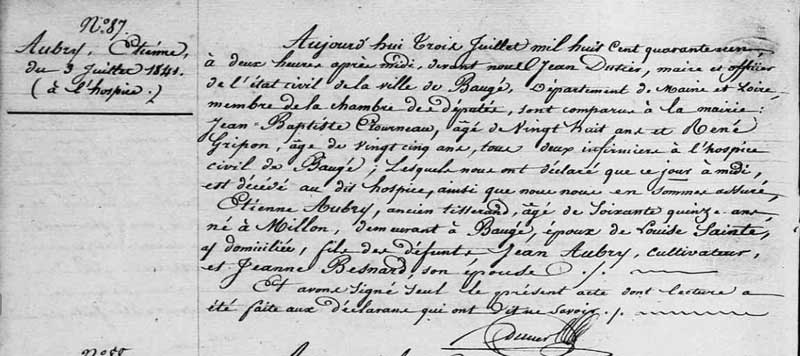 N.° 87.
Aubry, Etienne,
du 3 Juillet 1841.
(à l'hospice.)
Aujourd'hui Trois Juillet mil huit cent quarante un
à deux heures après midi, devant nous Jean Dutier, maire et officier
de l'état civil de la ville de Baugé, Département de Maine et Loire,
membre de la chambre des députés, sont comparus à la mairie :
Jean-Baptiste Tourneau, âgé de vingt huit ans et René
Gripon, âgé de vingt cinq ans, tous deux infirmiers à l'hospice
civil de Baugé ; Lesquels nous ont déclaré que ce jour à midi,
est décédé au dit hospice, ainsi que nous nous en sommes assuré,
Etienne Aubry, ancien tisserand, âgé de Soixante quinze ans,
né à Millon, demeurant à Baugé, époux de Louise Sainte,
y domiciliée, fils des défunts Jean Aubry, cultivateur,
et Jeanne Besnard, son épouse ./.
Et avons signé seul le présent acte dont lecture a
été faite aux déclarans qui ont dit ne savoir ./.
N.° 88.